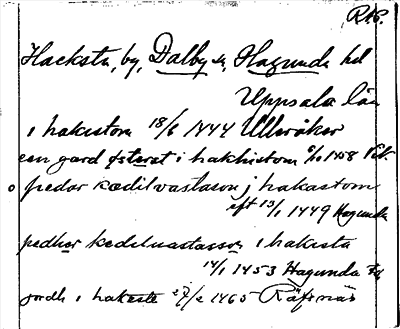 RAP.
Hacksta, by, Dalby sn, Hagunda hd
Uppsala län
i hakastom 18/6 1444 Ulleråker
een gard østerst i hakhistom 6/10 1458
pedar kædilvastason j hakastom
eft 13/1 1449 Hagunda
pedhar kedeluastasson i hakista
14/1 1453 Hagunda
jordh i hakesta 27/2 1465 Räfsnäs